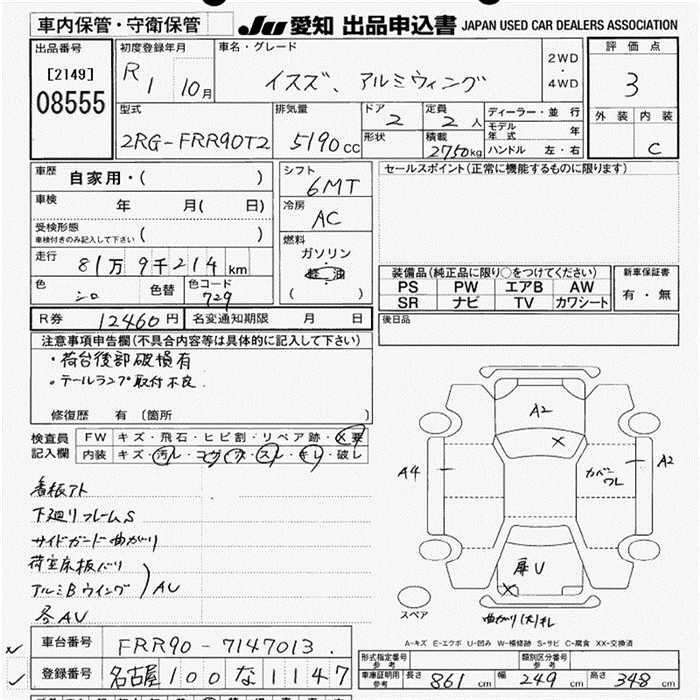 車内保管・守衛保管 JU 愛知 出品申込書 JAPAN USED CAR DEALERS ASSOCIATION
出品番号 初度登録年月 車名・グレード 評価点
[2149] R1 10月 イスズ、アルミウィング 2WD・4WD 3
08555
型式 排気量 ドア 定員 ディーラー・並行 外装 内装
2RG-FRR90T2 5190cc 2 2人 モデル年式 年
形状 積載 2750kg ハンドル 左・右 C
車歴 自家用・( ) シフト 6MT セールスポイント(正常に機能するものに限ります)
車検 年 月( 日) 冷房 AC
受検形態
車検付きのみ記入して下さい ( ) 燃料
走行 81万9千214km ガソリン
軽油
( )
色 シロ 色替 色コード 729 装備品(純正品に限り○をつけてください) 新車保証書
PS PW エアB AW 有・無
SR ナビ TV カワシート
R券 12460円 名変通知期限 月 日 後日品
注意事項申告欄(不具合内容等は具体的に記入して下さい)
・荷台後部破損有
・テールランプ取付不良.
修復歴 有 〔箇所 〕
検査員記入欄 FW キズ・飛石・ヒビ割・リペア跡・X要
内装 キズ・汚レ・コゲ・穴・スレ・キレ・破レ
A2
X
A4 カバーワレ A2
看板アト
下廻リフレームS
サイドガード曲がり
荷室床板バリ
アルミBウイング)AU
各AU
扉U
X
スペア 曲がり(大)キレ
A-キズ E-エクボ U-凹み W-補修跡 S-サビ C-腐食 XX-交換済
車台番号 FRR90-7147013.
登録番号 名古屋100な1147
形式指定番号 参考 類別区分番号 参考
車庫証明用参考 長さ 861cm 幅 249cm 高さ 348cm